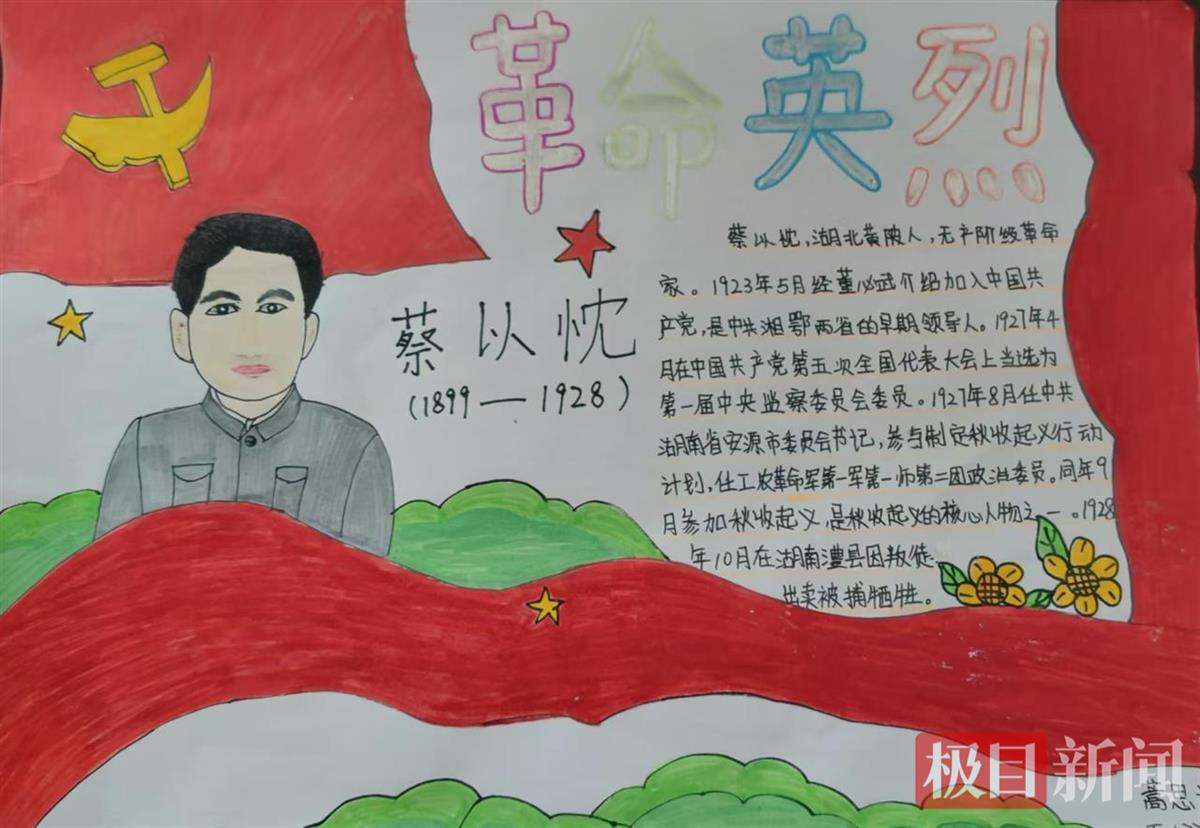 革命英烈
蔡以忱
(1899—1928)
蔡以忱,湖北黄陂人,无产阶级革命
家。1923年5月经董必武介绍加入中国共
产党,是中共湘鄂两省的早期领导人。1927年4
月在中国共产党第五次全国代表大会上当选为
第一届中央监察委员会委员。1927年8月任中共
湖南省安源市委员会书记,参与制定秋收起义行动
计划,任工农革命军第一军第一师第二团政治委员。同年9
月参加秋收起义,是秋收起义的核心人物之一。1928
年10月在湖南澧县因叛徒
出卖被捕牺牲。
极目新闻
蒿忠